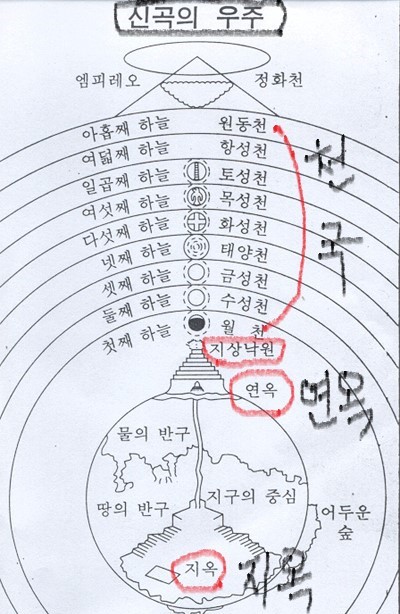 신곡의 우주
엠피레오 정화천
아홉째 하늘 원동천
여덟째 하늘 항성천
일곱째 하늘 토성천
여섯째 하늘 목성천
다섯째 하늘 화성천
넷째 하늘 태양천
셋째 하늘 금성천
둘째 하늘 수성천
첫째 하늘 월 천
천국
지상낙원
연옥 연옥
물의 반구
땅의 반구 지구의 중심
어두운
숲
지옥 지옥